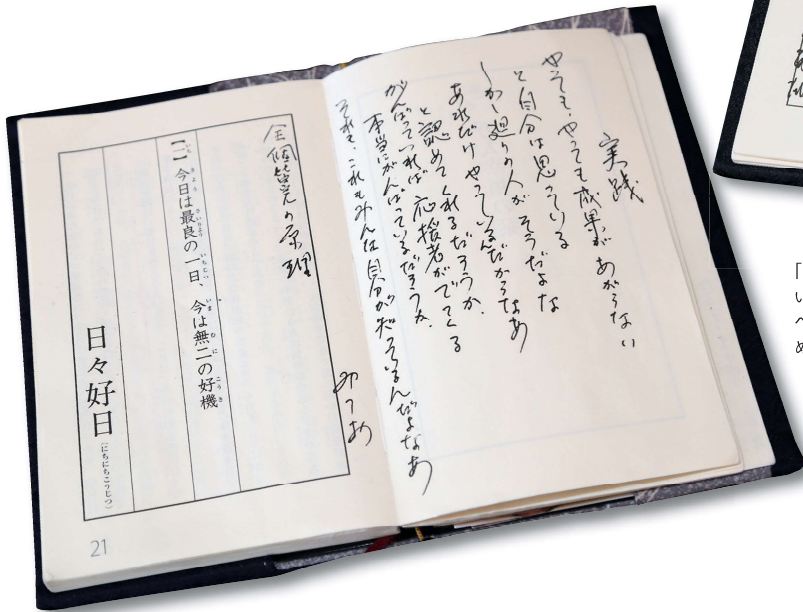 実践
やっても、やっても成果があがらない
と自分は思っている
しかし廻りの人がそうだよな
あれだけやっているんだからなあ
と認めてくれるだろうか、
がんばっていれば応援者がでてくる
本当にがんばっているだろうか、
それを、これもみんな自分が知っているんだよなあ
みつお
全個皆完の原理
【一】今日は最良の一日、今は無二の好機
日々好日（にちにちこうじつ）
21